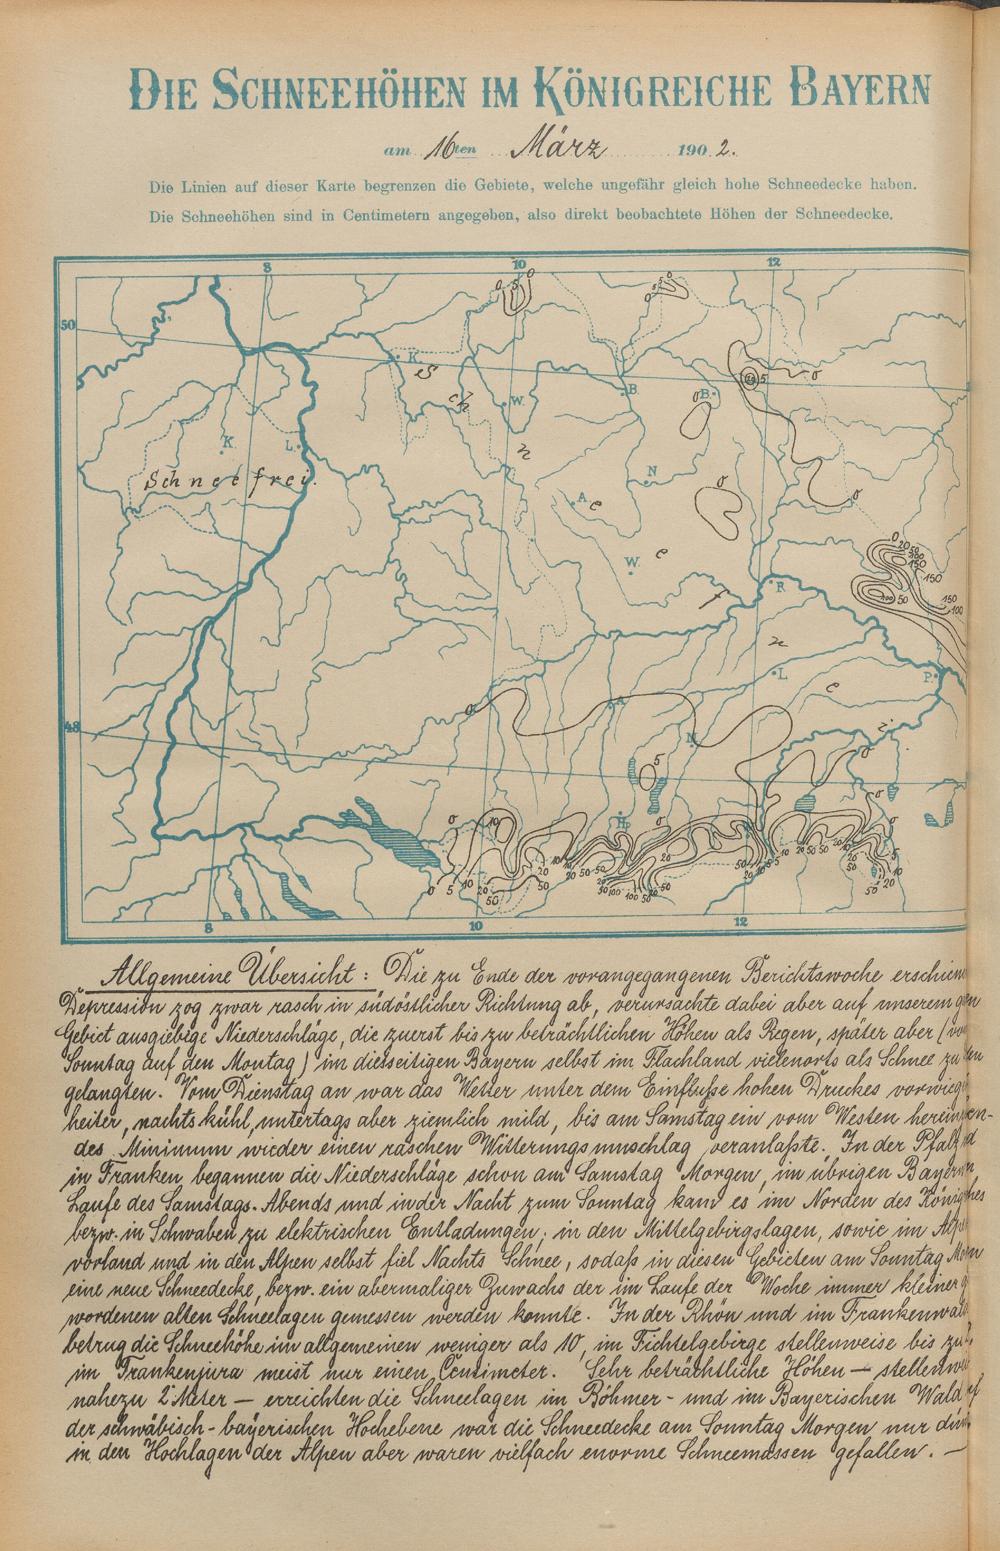 DIE SCHNEEHÖHEN IM KÖNIGREICHE BAYERN
am 16ten März 1902.
Die Linien auf dieser Karte begrenzen die Gebiete, welche ungefähr gleich hohe Schneedecke haben.
Die Schneehöhen sind in Centimetern angegeben, also direkt beobachtete Höhen der Schneedecke.
8 10 12
50
K.
W.
B.
B.
K
L.
N
A
W.
R
L
P.
A
M
48
Schneefrei.
es ch n e e f r e i
8 10 12
Allgemeine Übersicht: Die zu Ende der vorangegangenen Berichtswoche erschien
Depression zog zwar rasch in südöstlicher Richtung ab, verursachte dabei aber auf unserem
Gebiet ausgiebige Niederschläge, die zuerst bis zu beträchtlichen Höhen als Regen, später aber (
Sonntag auf den Montag) im diesseitigen Bayern selbst im Flachland vielenorts als Schnee zu
gelangten. Vom Dienstag an war das Wetter unter dem Einfluße hohen Druckes vorwieg
heiter, nachts kühl, untertags aber ziemlich mild, bis am Samstag ein vom Westen herein
des Minimum wieder einen raschen Witterungsumschlag veranlaßte. In der Pfalz
in Franken begannen die Niederschläge schon am Samstag Morgen, im übrigen Bayern
Laufe des Samstags. Abends und in der Nacht zum Sonntag kam es im Norden des König
bezw. in Schwaben zu elektrischen Entladungen; in den Mittelgebirgslagen, sowie im Alp
vorland und in den Alpen selbst fiel Nachts Schnee, sodaß in diesen Gebieten am Sonntag
eine neue Schneedecke, bezw. ein abermaliger Zuwachs der im Laufe der Woche immer kleiner
wordenen alten Schneelagen gemessen werden konnte. In der Rhön und im Frankenwald
betrug die Schneehöhe im allgemeinen weniger als 10, im Fichtelgebirge stellenweise bis zu
im Frankenjura meist nur einen Centimeter. Sehr beträchtliche Höhen — stellenw
nahezu 2 Meter — erreichten die Schneelagen im Böhmer- und im Bayerischen Wald
der schwäbisch-bayerischen Hochebene war die Schneedecke am Sonntag Morgen nur dün
in den Hochlagen der Alpen aber waren vielfach enorme Schneemassen gefallen. —